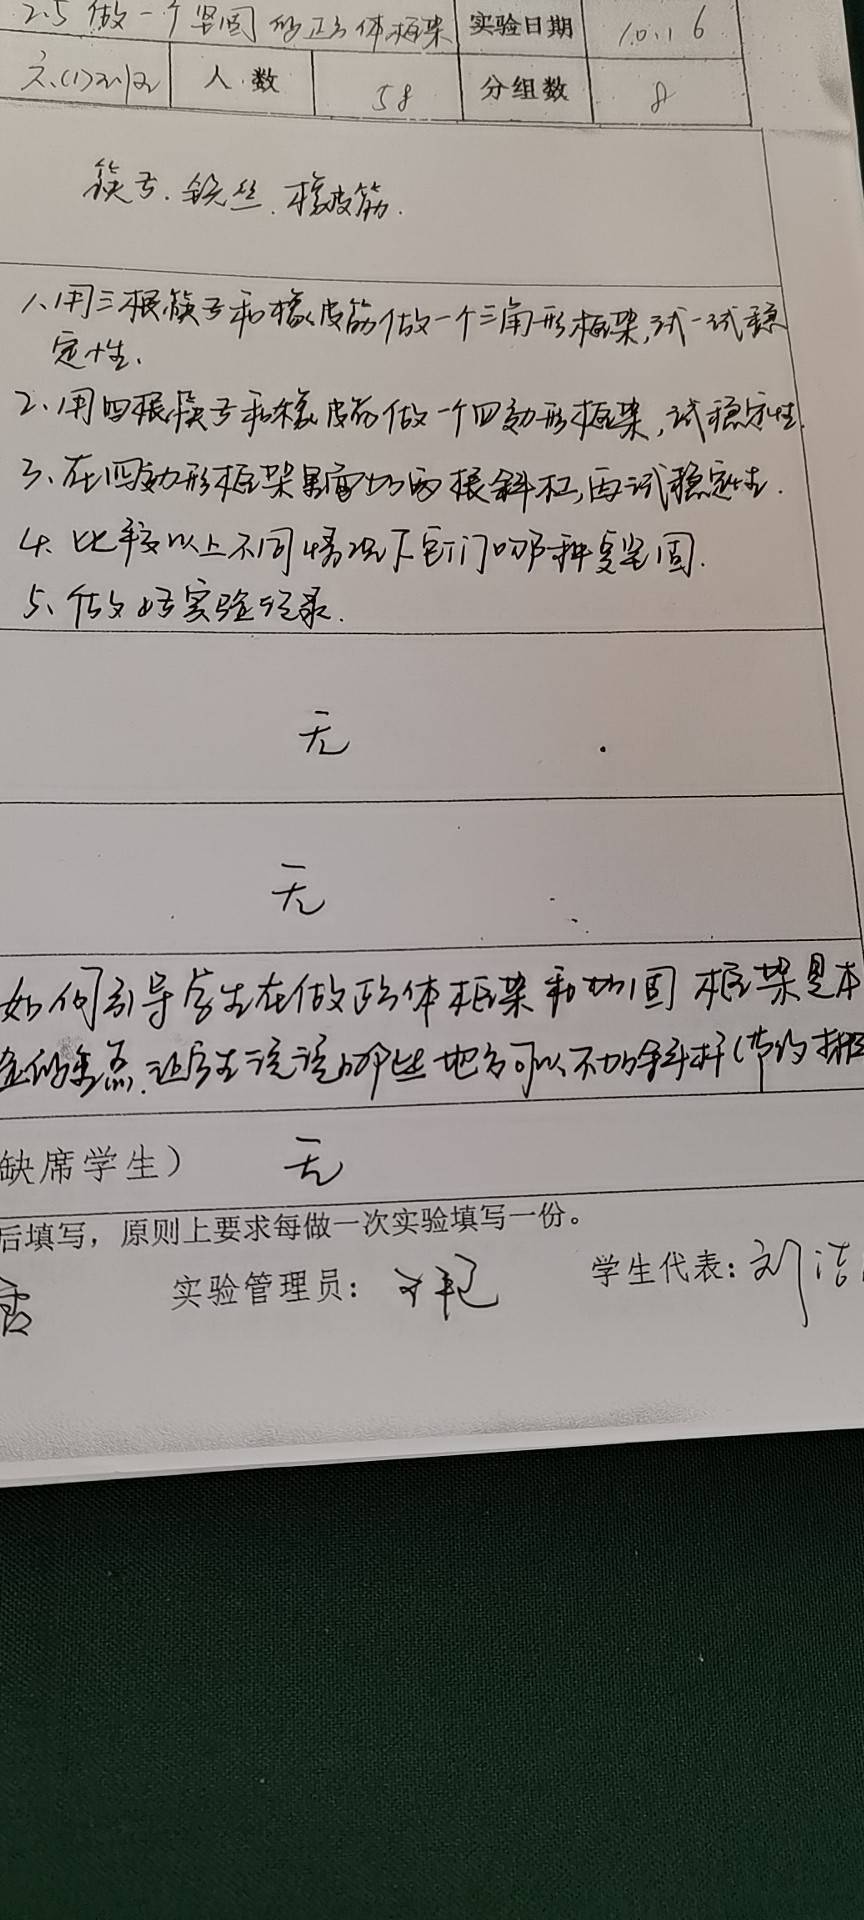 2.5 做一个坚固的正方体框架 实验日期 10.16
六.(1) 人数 58 分组数 8
筷子.铁丝.橡皮筋.
1、用三根筷子和橡皮筋做一个三角形框架,试一试稳
定性.
2、用四根筷子和橡皮筋做一个四边形框架,试稳定性.
3、在四边形框架里面加两根斜杠,再试稳定性.
4、比较以上不同情况下它们哪种更坚固.
5、做好实验记录.
无
无
如何引导学生在做正方体框架和加固框架是本
的重点.让学生说说哪些地方可以不加斜杆(节约
缺席学生) 无
后填写，原则上要求每做一次实验填写一份。
实验管理员: 学生代表: 刘洁